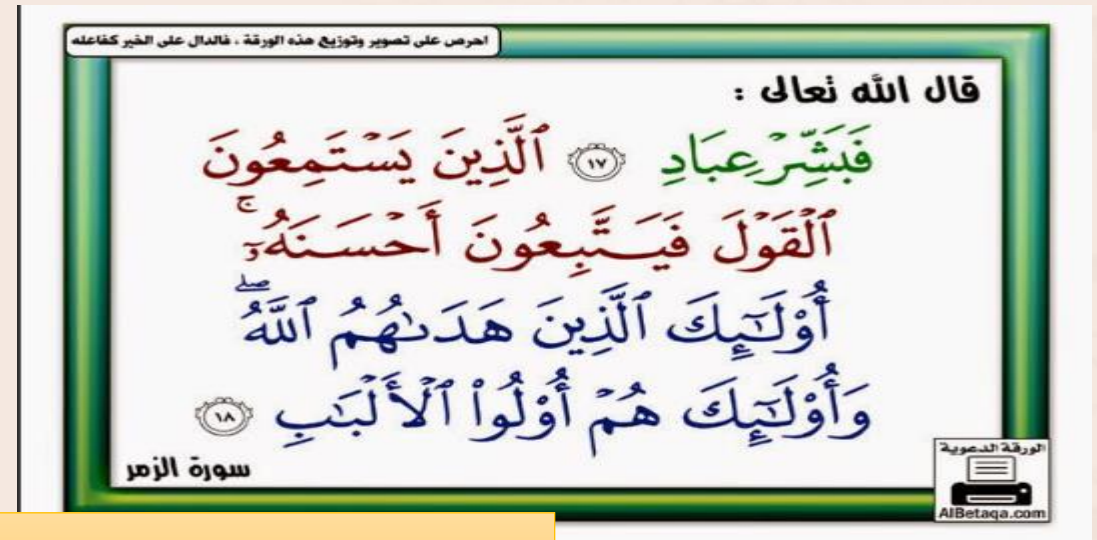 احرص على تصوير وتوزيع هذه الورقة ، فالدال على الخير كفاعله
قال الله تعالى :
فَبَشِّرْ عِبَادِ ١٧ ٱلَّذِينَ يَسْتَمِعُونَ
ٱلْقَوْلَ فَيَتَّبِعُونَ أَحْسَنَهُۥٓ ۚ
أُو۟لَـٰٓئِكَ ٱلَّذِينَ هَدَىٰهُمُ ٱللَّهُ ۖ
وَأُو۟لَـٰٓئِكَ هُمْ أُو۟لُوا۟ ٱلْأَلْبَـٰبِ ١٨
سورة الزمر
الورقة الدعوية
AlBetaqa.com